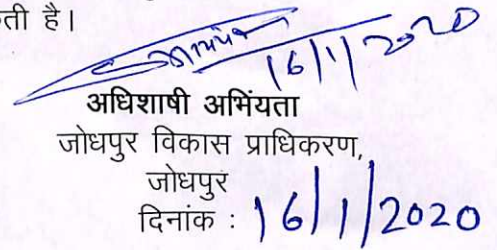 ती है।
16/1/2020
अधिशाषी अभिंयता
जोधपुर विकास प्राधिकरण,
जोधपुर
दिनांक : 16/1/2020